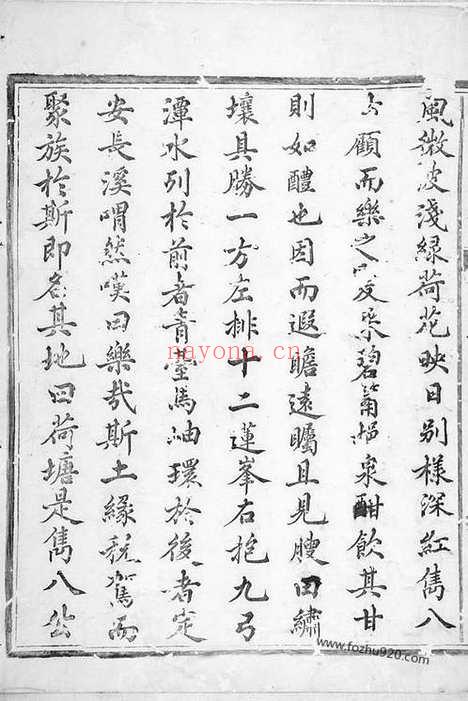 風微波淺綠荷花映日別樣深紅雋八
公顧而樂之爰采碧筩挹泉酣飲其甘
則如醴也因而遐瞻遠矚且見腴田繡
壤具勝一方左排十二蓮峯右抱九弓
潭水列於前者青臺馬岫環於後者定
安長溪喟然嘆曰樂哉斯土緣稅駕而
聚族於斯即名其地曰荷塘是雋八公
nayona.cn
www.fozhu920.com